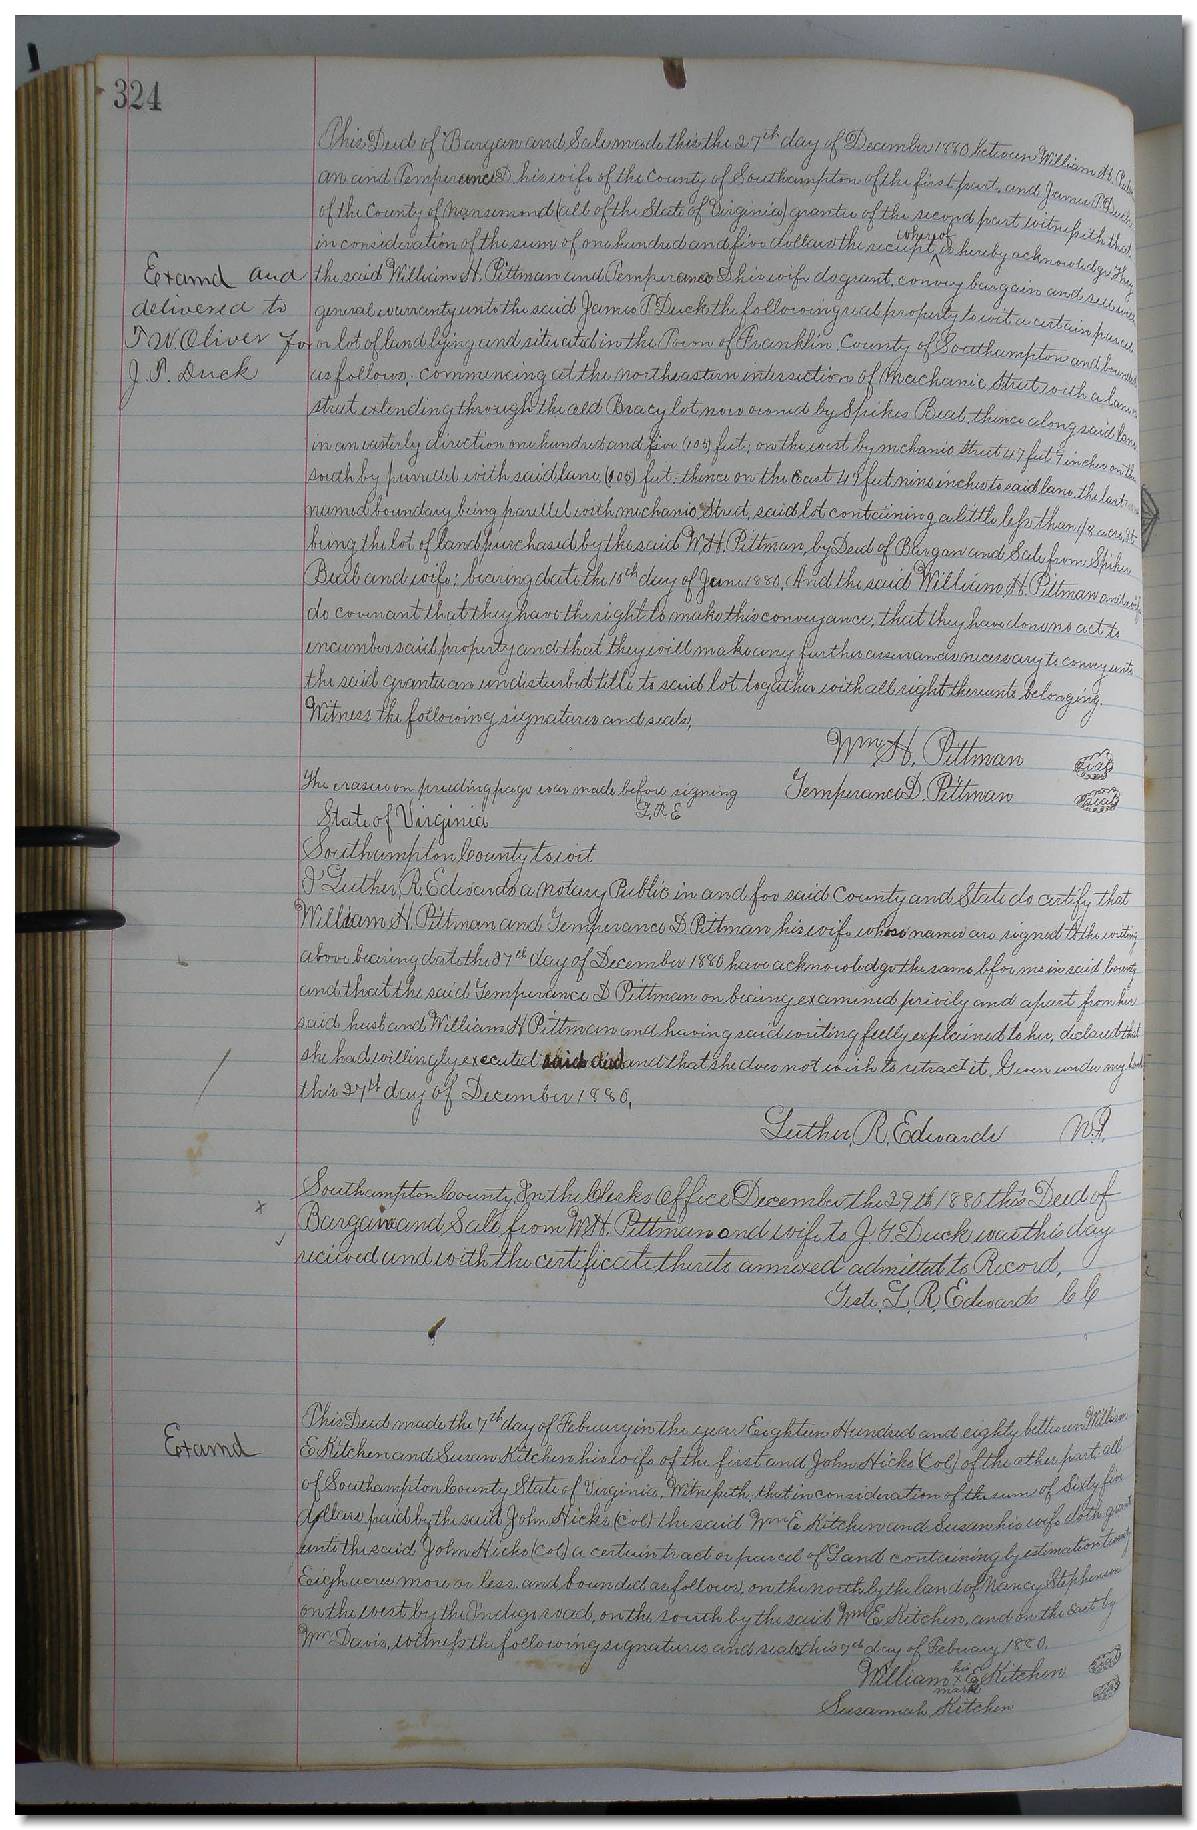 324
This Deed of Bargan and Sale made this the 27th day of December 1880 between William H.
an and Temperance D his wife of the County of Southampton of the first part, and James P. Duck
of the County of Nansemond (all of the State of Virginia) grantee of the second part witnesseth that
in consideration of the sum of one hundred and five dollars the receipt whereof is hereby acknowledge they
the said William H. Pittman and Temperance D his wife do grant, convey bargain and sell with
general warranty unto the said James P. Duck the following real property to wit a certain parcel
or lot of land lying and situated in the Town of Franklin County of Southampton and bounded
as follows, commencing at the northeastern intersection of Machanic Street with a lane or
street extending through the old Bracy lot, now owned by Spikes Beal, thence along said lane
in an easterly direction one hundred and five (105) feet; on the west by mchanic Street 49 feet 9 inches on the
south by parallel with said lane (105) feet. thence on the East 49 feet nine inches to said lane, the last
named boundary being parallel with mechanic Street, said lot containing a little less than 1/8 acre, it
being the lot of land purchased by the said W.H. Pittman, by Deed of Bargan and Sale from Spikes
Beal and wife; bearing date the 10th day of June 1880. And the said William H. Pittman and wife
do covenant that they have the right to make this conveyance, that they have done no act to
encumber said property and that they will make any further assurances necessary to convey unto
the said grantee an undisturbed title to said lot together with all right thereunto belonging.
Witness the following signatures and seals,
Wm H. Pittman seal
Temperance D. Pittman seal
The erase on preceding page was made before signing
L.R.E
Examd and
delivered to
T W Oliver for
J. P. Duck
State of Virginia
Southampton County to wit
I Luther R. Edwards a notary Public in and for said County and State do certify that
William H. Pittman and Temperance D. Pittman his wife whose names are signed to the writing
above bearing date the 27th day of December 1880 have acknowledge the same before me in said County
and that the said Temperance D Pittman on being examined privily and apart from her
said husband William H Pittman and having said writing fully explained to her, declared that
she had willingly executed said deed and that she does not wish to retract it. Given under my hand
this 27th day of December 1880,
Luther R. Edwards N.P.
Southampton County In the Clerks Office December the 29th 1880 this Deed of
Bargain and Sale from W.H. Pittman and wife to J. P. Duck was this day
recieved and with the certificate thereto annexed admitted to Record,
Teste, L. R. Edwards C C
Examd
This Deed made the 7th day of Febuary in the year Eighteen Hundred and eighty between William
E Kitchen and Susan Kitchen his wife of the first and John Hicks (Col) of the other part, all
of Southampton County State of Virginia, Witnesseth, that in consideration of the sum of Sixty five
dollars paid by the said John Hicks (Col) the said Wm E Kitchen and Susan his wife doth grant
unto the said John Hicks (Col) a certain tract or parcel of Land containing by estimation twenty
Eigh acres more or less and bounded as follows, on the north by the land of Nancy Stephenson
on the west by the road, on the south by the said Wm E Kitchen, and on the East by
Wm Davis, witness the following signatures and seals this 7th day of Febuary 1880.
William his x mark E Kitchen seal
Susannah Kitchen seal